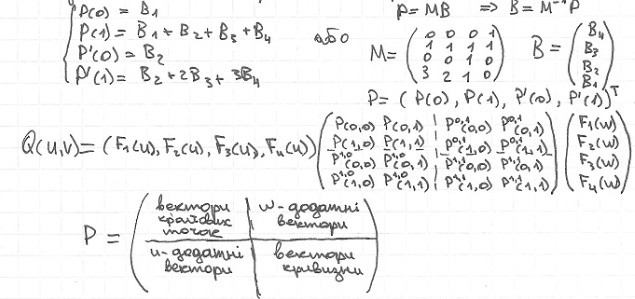 P(0) = B₁
P(1) = B₁ + B₂ + B₃ + B₄
P'(0) = B₂
P'(1) = B₂ + 2B₃ + 3B₄
або
P = MB ⇒ B = M⁻¹P
M = (0 0 0 1
1 1 1 1
0 0 1 0
3 2 1 0)
B = (B₄
B₃
B₂
B₁)
P = (P(0), P(1), P'(0), P'(1))ᵀ
Q(u,v) = (F₁(u), F₂(u), F₃(u), F₄(u))
P(0,0) P(0,1) | P⁰'¹(0,0) P⁰'¹(0,1)
P(1,0) P(1,1) | P⁰'¹(1,0) P⁰'¹(1,1)
P¹'⁰(0,0) P¹'⁰(0,1) | P¹'¹(0,0) P¹'¹(0,1)
P¹'⁰(1,0) P¹'⁰(1,1) | P¹'¹(1,0) P¹'¹(1,1)
F₁(w)
F₂(w)
F₃(w)
F₄(w)
P =
вектори
точок
w-додатні
вектори
u-додатні
вектори
вектори
кривизни